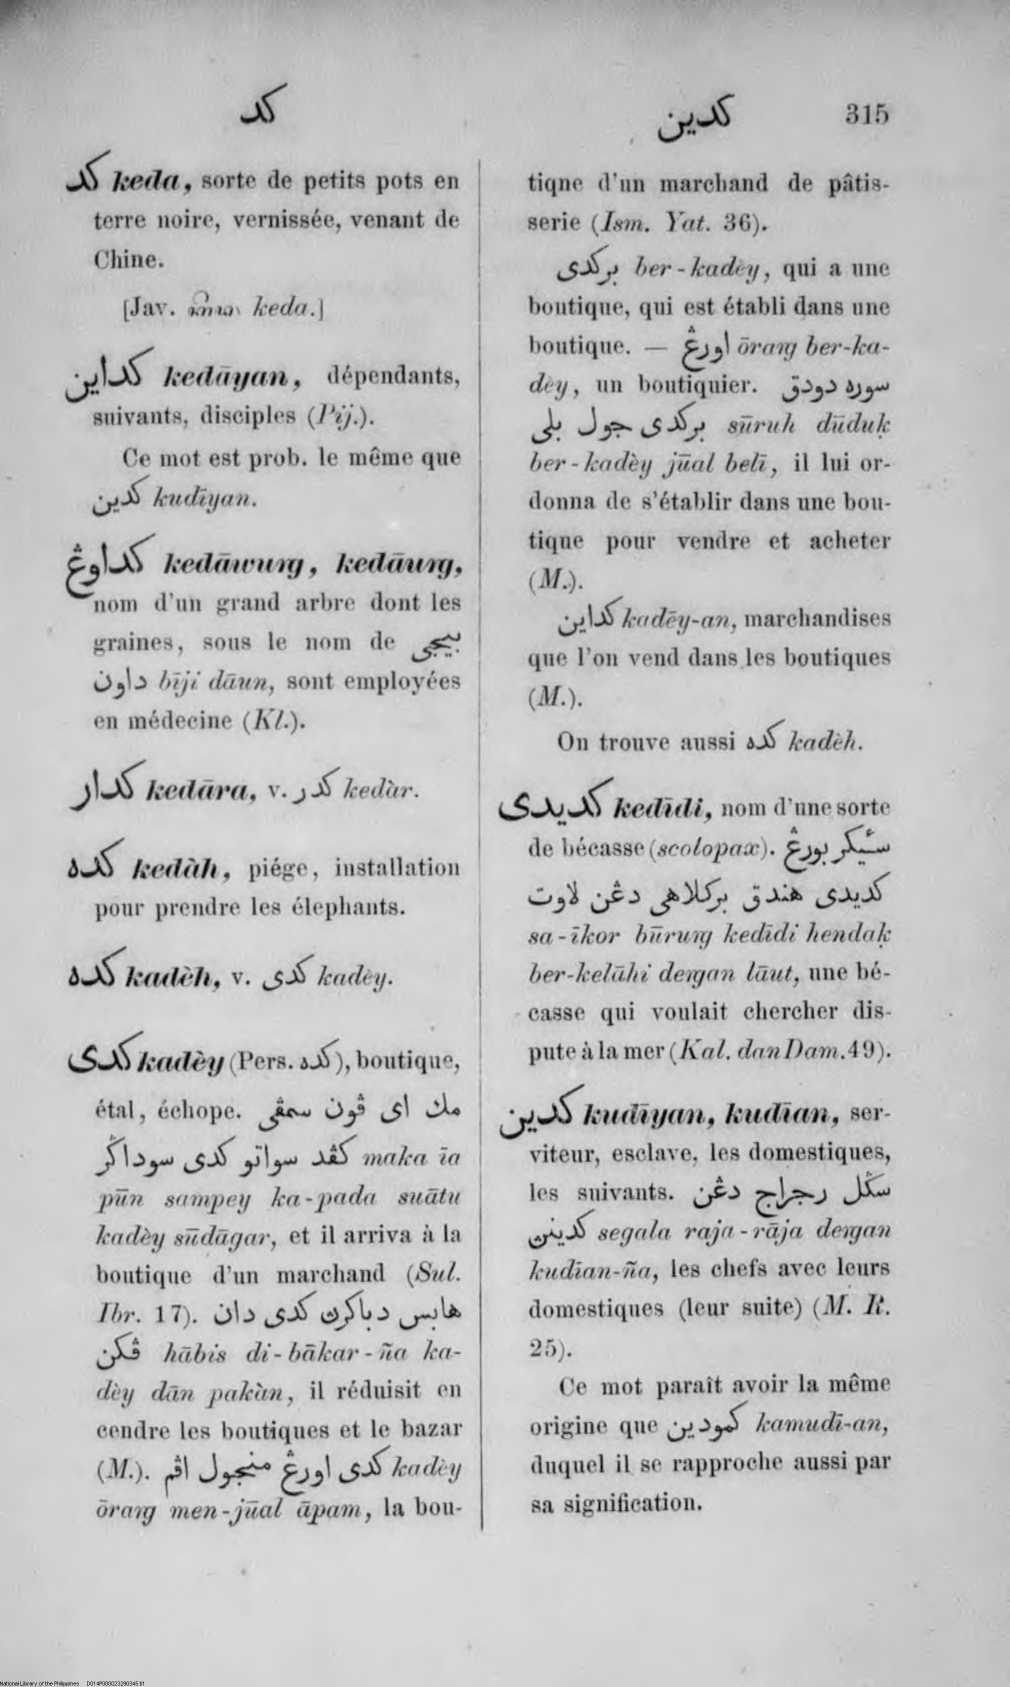 كد
كدين 315
كد keda, sorte de petits pots en
terre noire, vernissée, venant de
Chine.
[Jav. keda.]
كداين kedāyan, dépendants,
suivants, disciples (Pij.).
Ce mot est prob. le même que
كدين kudīyan.
كداوڠ kedāwuɳg, kedāuɳg,
nom d'un grand arbre dont les
graines, sous le nom de بيجى
داون bīji dāun, sont employées
en médecine (Kl.).
كدار kedāra, v. كدر kedàr.
كده kedàh, piége, installation
pour prendre les élephants.
كده kadèh, v. كدى kadèy.
كدى kadèy (Pers. كده), boutique,
étal, échope. مك اى ڤون سمڤى
كڤد سواتو كدى سوداݢر maka īa
pūn sampey ka-pada suātu
kadèy sūdāgar, et il arriva à la
boutique d'un marchand (Sul.
Ibr. 17). هابس دباكرڽ كدى دان
ڤكن hābis di-bākar-ña ka-
dèy dān pakàn, il réduisit en
cendre les boutiques et le bazar
(M.). كدى اورڠ منجول اڤم kadèy
ōraɳg men-jūal āpam, la bou-
tiqne d'un marchand de pâtis-
serie (Ism. Yat. 36).
بركدى ber-kadèy, qui a une
boutique, qui est établi dans une
boutique. — اورڠ ōraɳg ber-ka-
dèy, un boutiquier. سوره دودق
بركدى جول بلى sūruh dūduḳ
ber-kadèy jūal belī, il lui or-
donna de s'établir dans une bou-
tique pour vendre et acheter
(M.).
كداين kadēy-an, marchandises
que l'on vend dans les boutiques
(M.).
On trouve aussi كده kadèh.
كديدى kedīdi, nom d'une sorte
de bécasse (scolopax). سئيكر بورڠ
كديدى هندق بركلاهى دڠن لاوت
sa-īkor būruɳg kedīdi hendaḳ
ber-kelāhi deɳgan lāut, une bé-
casse qui voulait chercher dis-
pute à la mer (Kal. dan Dam. 49).
كدين kudīyan, kudīan, ser-
viteur, esclave, les domestiques,
les suivants. سݢل رجراج دڠن
كدينڽ segala raja-rāja deɳgan
kudīan-ña, les chefs avec leurs
domestiques (leur suite) (M. R.
25).
Ce mot paraît avoir la même
origine que كمودين kamudī-an,
duquel il se rapproche aussi par
sa signification.
National Library of the Philippines